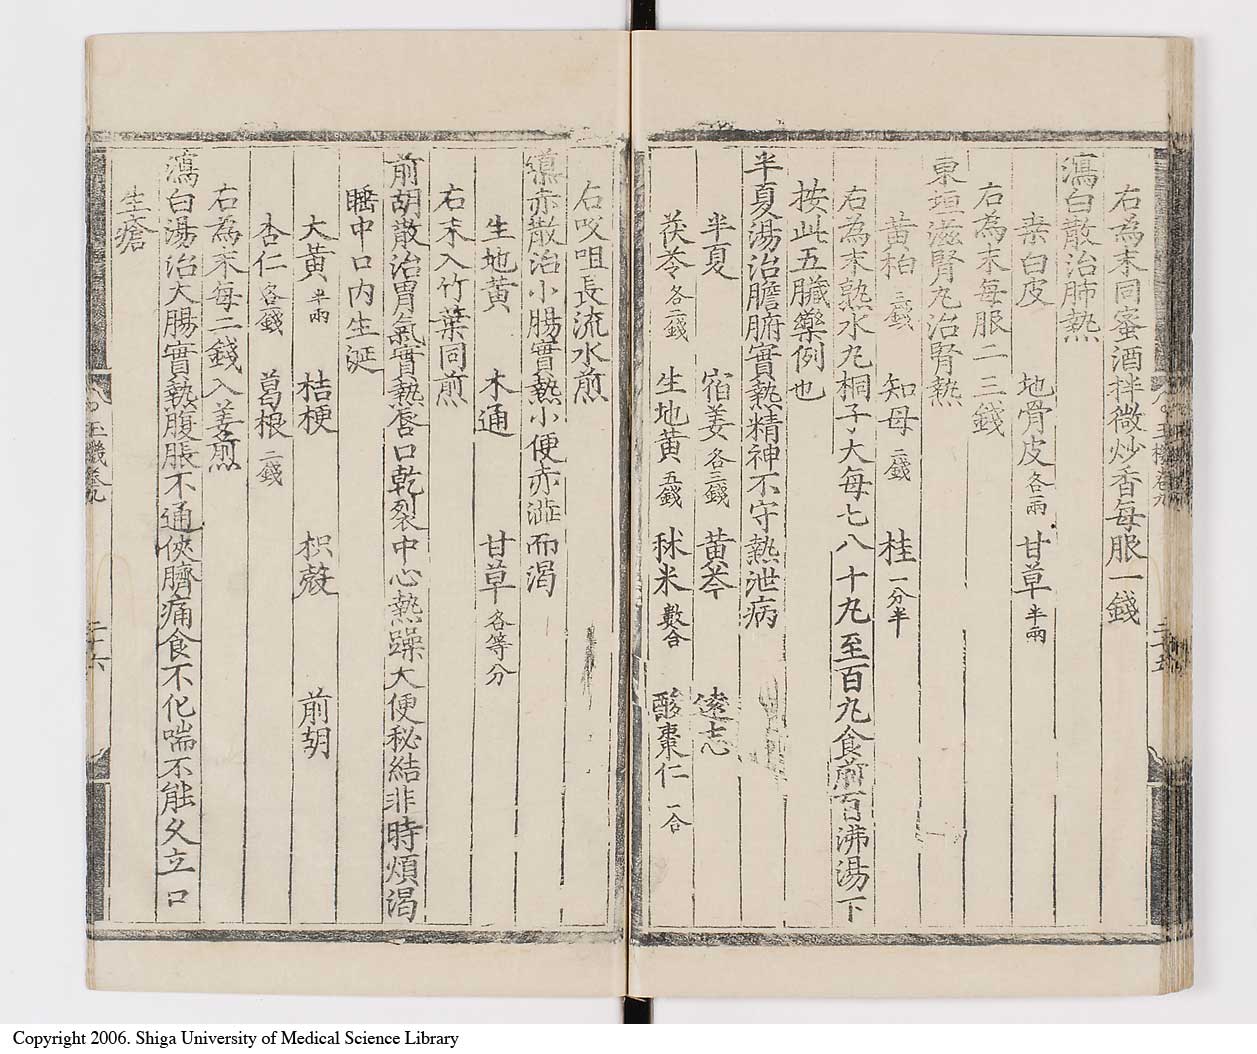 右為末同蜜酒拌微炒香每服一錢
瀉白散治肺熱
桒白皮　地骨皮各一兩　甘草半兩
右為末每服二三錢
東垣滋腎丸治腎熱
黃柏三錢　知母二錢　桂一分半
右為末熟水丸桐子大每七八十丸至百丸食前百沸湯下
按此五臟藥例也
半夏湯治膽腑實熱精神不守熱泄病
半夏　宿姜各三錢　黃芩　遠志
茯苓各二錢　生地黃五錢　秫米數合　酸棗仁一合
右㕮咀長流水煎
導赤散治小腸實熱小便赤澁而渴
生地黃　木通　甘草各等分
右末入竹葉同煎
前胡散治胃氣實熱唇口乾裂中心熱躁大便秘結非時煩渴
睡中口內生涎
大黃半兩　桔梗　枳殼　前胡
杏仁各三錢　葛根二錢
右為末每二錢入姜煎
瀉白湯治大腸實熱腹脹不通俠臍痛食不化喘不能久立口
生瘡
玉機卷九
二十五
玉機卷九
二十六
Copyright 2006. Shiga University of Medical Science Library